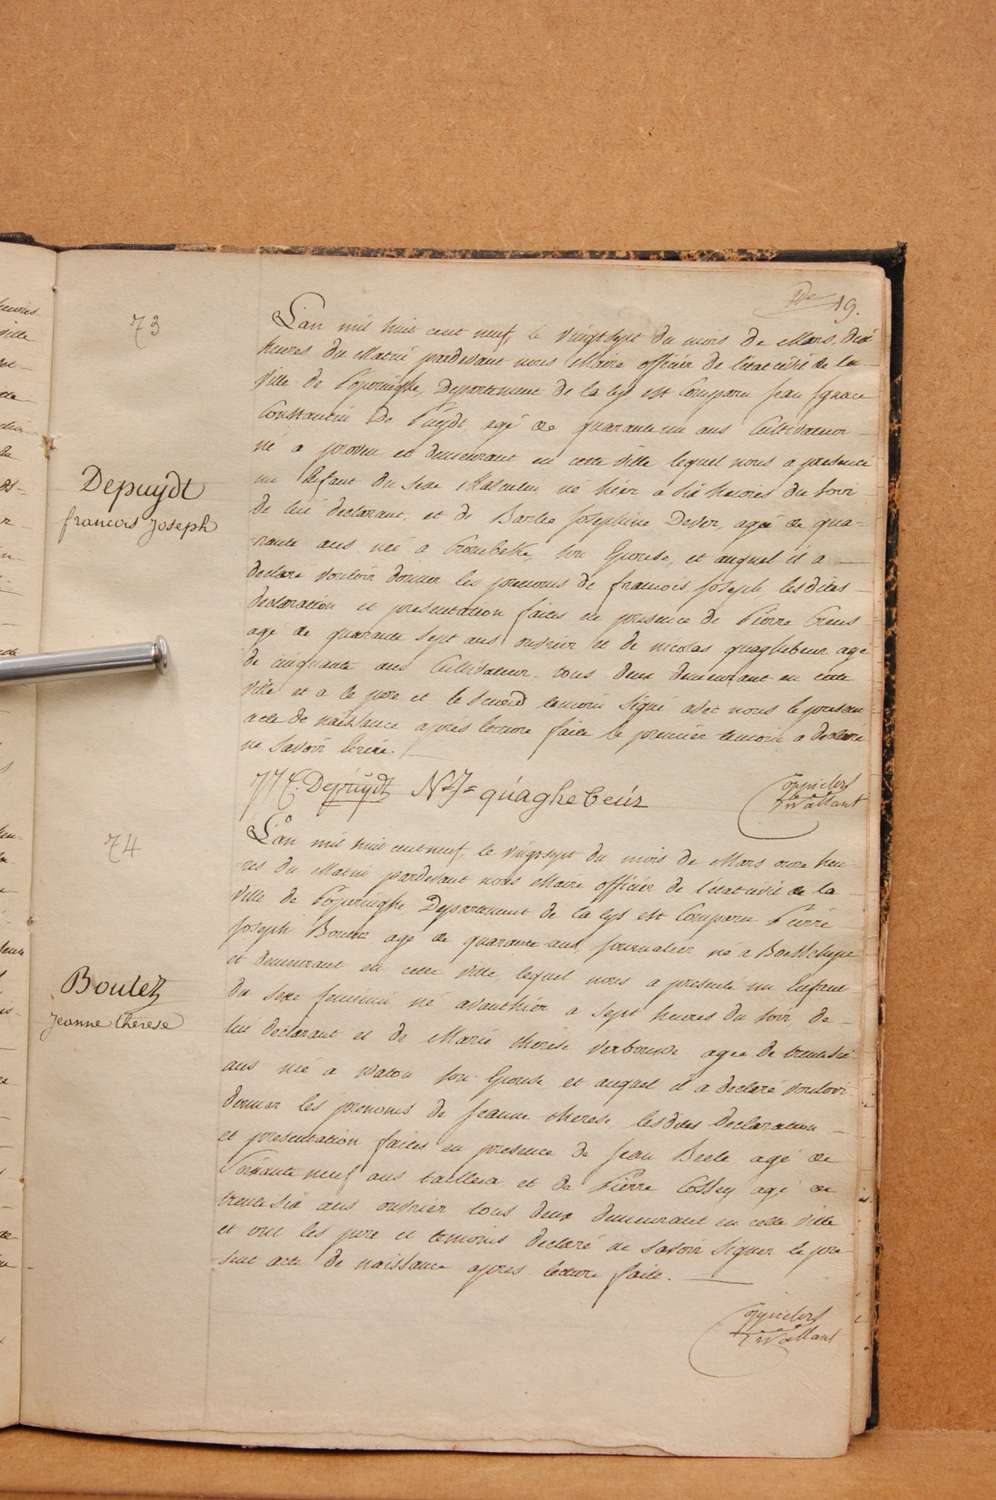 19.
73
L'an mil huit cent neuf, le vingt sept du mois de Mars dix
heures du Matin pardevant nous Maire officier de l'etat civil de la
ville de Poperinghe, Departement de la Lys est Comparu Jean Ignace
Constantin De Puydt agé de quarante un ans Cultivateur
né a proven et demeurant en cette ville lequel nous a presenté
un Enfant du Sexe Masculin né hier a six heures du soir
de lui declarant, et de Barbe Josephine Dever, agée de qua-
-rante ans née a Crombeke, son Epouse, et auquel il a
declaré vouloir donner les prenoms de francois Joseph lesdites
declaration et presentation faites en presence de Pierre Creus
agé de quarante sept ans ouvrier et de nicolas quaghebeur agé
de cinquante ans Cultivateur, tous deux demeurant en cette
ville et a le pere et le second temoin signé avec nous le present
acte de naissance apres lecture faite le premier temoin a declaré
ne savoir écrire.
Depuydt
francois Joseph
JJC. Depuydt NJe quaghebeur
74
L'an mil huit cent neuf, le vingt sept du mois de Mars onze heu-
-res du Matin pardevant nous Maire officier de l'etat civil de la
ville de Poperinghe Departement de la Lys est Comparu Pierre
Joseph Boutez agé de quarante ans journalier né a Boeschepe
et demeurant en cette ville, lequel nous a presenté un Enfant
du sexe feminin né avanthier a sept heures du soir de
lui declarant et de Marie therese verborne agée de trente six
ans née a watou son Epouse et auquel il a declaré vouloir
donner les prenoms de Jeanne therese lesdites declaration
et presentation faites en presence de Jean Beele agé de
Soixante neuf ans tailleur et de Pierre Cossey agé de
trente six ans ouvrier tous deux demeurant en cette ville
et ont les pere et temoins declaré ne savoir signer le pre
sent acte de naissance apres lecture faite.
Boutez
Jeanne Thérese